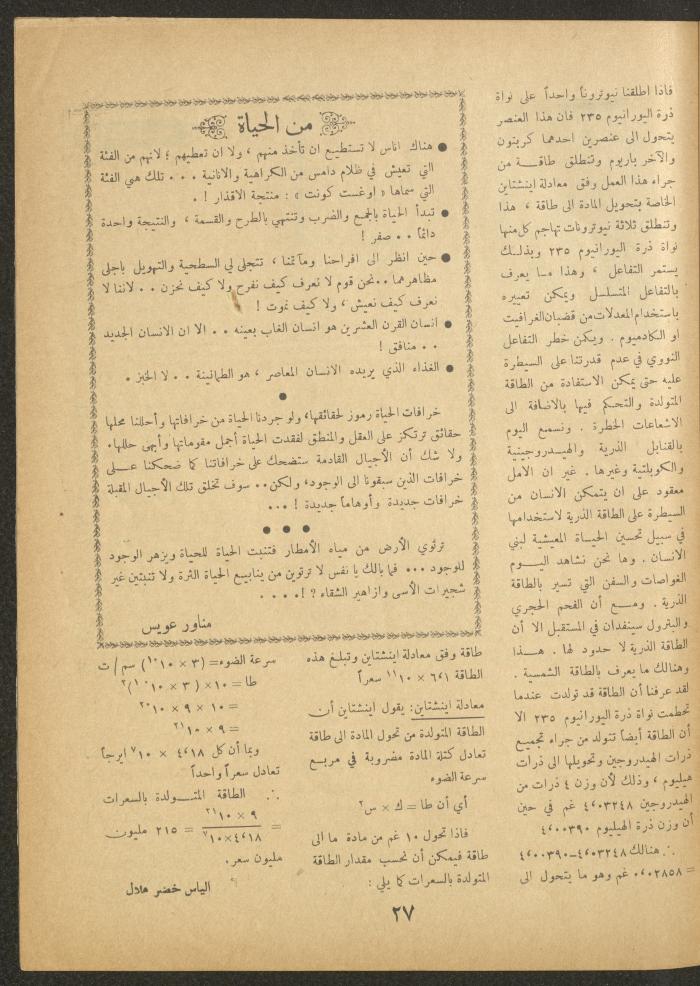 فاذا اطلقنا نيوترونًا واحدًا على نواة
ذرة اليورانيوم ٢٣٥ فان هذا العنصر
يتحول الى عنصرين احدهما كربتون
والآخر باريوم وتنطلق طاقة من
جراء هذا العمل وفق معادلة اينشتاين
الخاصة بتحويل المادة الى طاقة ، هذا
وتنطلق ثلاثة نيوترونات تهاجم كل منها
نواة ذرة اليورانيوم ٢٣٥ وبذلك
يستمر التفاعل ، وهذا ما يعرف
بالتفاعل المتسلسل ويمكن تعييره
باستخدام المعدلات من قضبان الغرافيت
او الكادميوم . ويكمن خطر التفاعل
النووي في عدم قدرتنا على السيطرة
عليه حتى يمكن الاستفادة من الطاقة
المتولدة والتحكم فيها بالاضافة الى
الاشعاعات الخطرة . ونسمع اليوم
بالقنابل الذرية والهيدروجينية
والكوبلتية وغيرها . غير ان الأمل
معقود على ان يتمكن الانسان من
السيطرة على الطاقة الذرية لاستخدامها
في سبيل تحسين الحياة المعيشية لبني
الانسان . وها نحن نشاهد اليوم
الغواصات والسفن التي تسير بالطاقة
الذرية . ومع أن الفحم الحجري
والبترول سينفدان في المستقبل الا أن
الطاقة الذرية لا حدود لها . هذا
وهنالك ما يعرف بالطاقة الشمسية .
لقد عرفنا أن الطاقة قد تولدت عندما
تحطمت نواة ذرة اليورانيوم ٢٣٥ الا
أن الطاقة أيضًا تتولد من جراء تجميع
ذرات الهيدروجين وتحويلها الى ذرات
هيليوم ، وذلك لأن وزن ٤ ذرات من
الهيدروجين ٤٬٠٣٢٤٨ غم في حين
أن وزن ذرة الهيليوم ٤٬٠٠٣٩٠
∴ هنالك ٤٬٠٣٢٤٨–٤٬٠٠٣٩٠
= ٠٬٠٢٨٥٨ غم وهو ما يتحول الى
من الحياة
● هناك اناس لا تستطيع ان تأخذ منهم ، ولا ان تعطيهم ؛ لانهم من الفئة
التي تعيش في ظلام دامس من الكراهية والانانية . . . تلك هي الفئة
التي سماها « اوغست كونت » : منتجة الاقذار ! .
● تبدأ الحياة بالجمع والضرب وتنتهي بالطرح والقسمة ، والنتيجة واحدة
دائمًا . . صفر !
● حين انظر الى افراحنا ومآتمنا ، تتجلى لي السطحية والتهويل باجلى
مظاهرهما . . نحن قوم لا نعرف كيف نفرح ولا كيف نحزن . . لاننا لا
نعرف كيف نعيش ، ولا كيف نموت !
● انسان القرن العشرين هو انسان الغاب بعينه . . الا ان الانسان الجديد
. . منافق !
● الغذاء الذي يريده الانسان المعاصر ، هو الطمانينة . . لا الخبز .
●
خرافات الحياة رموز لحقائقها، ولو جردنا الحياة من خرافاتها وأحللنا محلها
حقائق ترتكز على العقل والمنطق لفقدت الحياة أجمل مقوماتها وأبهى حللها.
ولا شك أن الأجيال القادمة ستضحك على خرافاتنا كما ضحكنا على
خرافات الذين سبقونا الى الوجود، ولكن . . سوف تخلق تلك الأجيال المقبلة
خرافات جديدة وأوهامًا جديدة ! . . .
● ● ●
ترتوي الأرض من مياه الأمطار فتنبت الحياة للحياة ويزهر الوجود
للوجود . . . فما بالك يا نفس لا ترتوين من ينابيع الحياة الثرة ولا تنبتين غير
شجيرات الأسى وازاهير الشقاء ؟ ! . . . .
مناور عويس
طاقة وفق معادلة اينشتاين وتبلغ هذه
الطاقة ٦٬١ × ١٠¹¹ سعرًا
معادلة اينشتاين: يقول اينشتاين أن
الطاقة المتولدة من تحول المادة الى طاقة
تعادل كتلة المادة مضروبة في مربع
سرعة الضوء
أي أن طا = ك × س²
فاذا تحول ١٠ غم من مادة ما الى
طاقة فيمكن أن نحسب مقدار الطاقة
المتولدة بالسعرات كما يلي :
سرعة الضوء= (٣ × ١٠¹⁰) سم / ث
طا = ١٠ × ( ٣ × ١٠¹⁰)²
= ١٠ × ٩ × ١٠²⁰
= ٩ × ١٠²¹
وبما أن كل ٤٬١٨ × ١٠⁷ ايرجًا
تعادل سعرًا واحدًا
∴ الطاقة المتولدة بالسعرات
٩ × ١٠²¹
= ــــــــ = ٢١٥ مليون
٤٬١٨×١٠⁷
مليون سعر.
الياس خضر هلال
٢٧